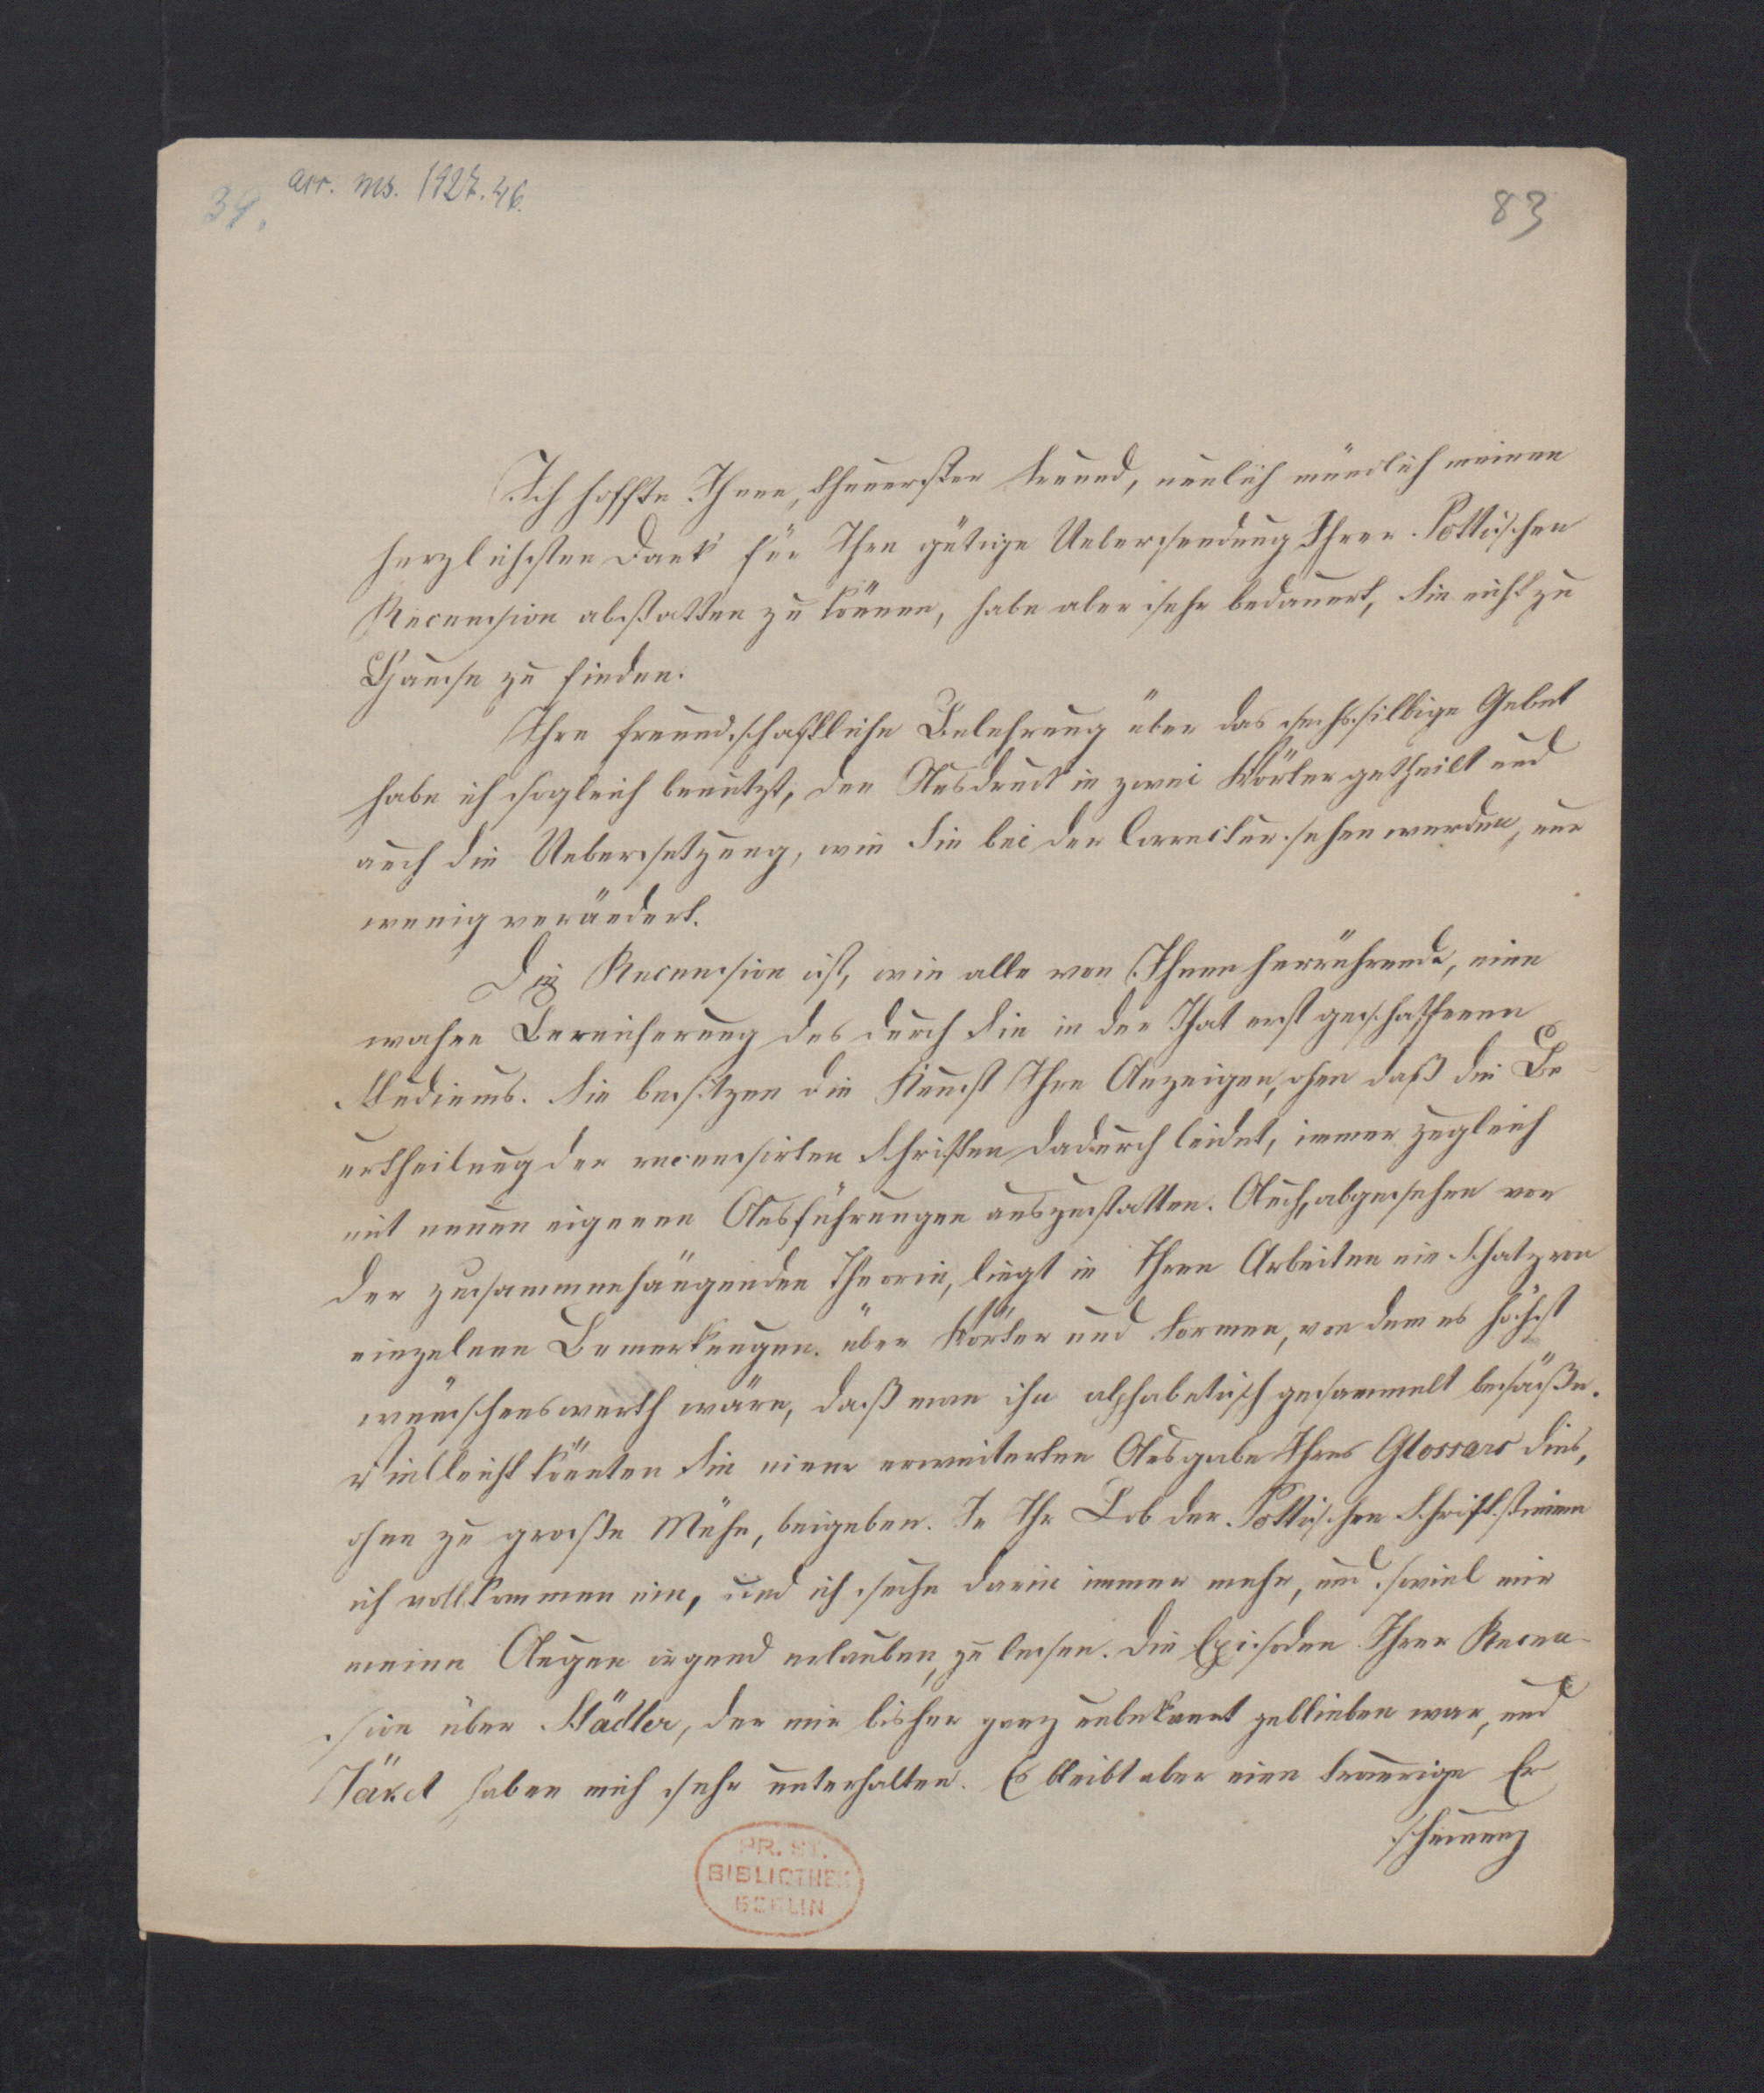 39.
acc. ms. 1927.46.
83
Ich hoffte Ihnen, theuerster Freund, neulich mündlich meinen
herzlichsten Dank für Ihre gütige Uebersendung Ihrer Pottischen
Recension abstatten zu können, habe aber sehr bedauert, Sie nicht zu
Hause zu finden.
Ihre freundschaftliche Belehrung über das sechssilbige Gebet
habe ich sogleich benutzt, den Ausdruck in zwei Wörter getheilt und
auch die Uebersetzung, wie Sie bei der Correctur sehen werden, nur
wenig verändert.
Die Recension ist, wie alle von Ihnen herrührende, eine
wahre Bereicherung des durch Sie in der That erst geschaffenen
Studiums. Sie besitzen die Kunst Ihre Anzeigen, ohne daß die Be
urtheilung der recensirten Schriften dadurch leidet, immer zugleich
mit neuen eigenen Ausführungen auszustatten. Auch, abgesehen von
der zusammenhängenden Theorie, liegt in Ihren Arbeiten ein Schatz von
einzelnen Bemerkungen über Wörter und Formen, von dem es höchst
wünschenswerth wäre, daß man ihn alphabetisch gesammelt besäße.
Vielleicht könnten Sie einer erweiterten Ausgabe Ihres Glossars dies,
ohne zu große Mühe, beigeben. In Ihr Lob der Pottischen Schrift stimme
ich vollkommen ein, und ich suche darin immer mehr, und soviel mir
meine Augen irgend erlauben, zu lesen. Die Episoden Ihrer Recen-
sion über Städler, der mir bisher ganz unbekannt geblieben war, und
Jäkel haben mich sehr unterhalten. Es bleibt aber eine traurige Er
scheinung
PR. ST.
BIBLIOTHEK
BERLIN